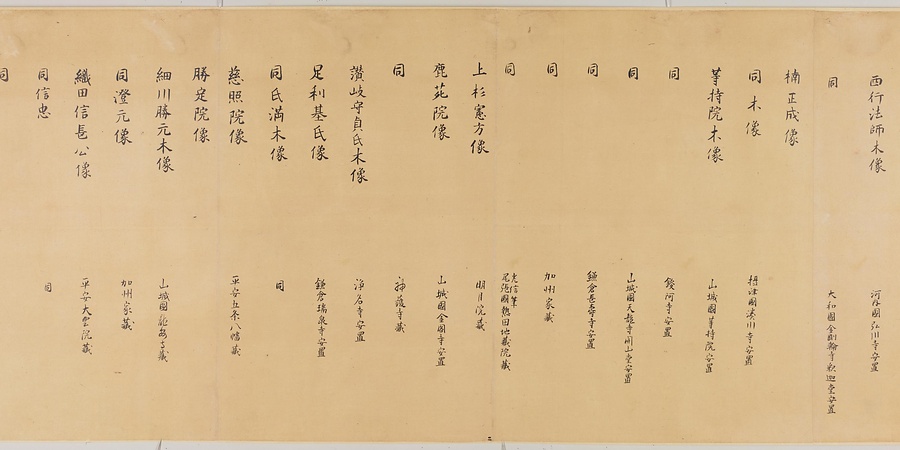 西行法師木像 河内國弘川寺安置
同 大和國金剛輪寺釈迦堂安置
楠正成像
同木像 摂津國湊川寺安置
等持院木像 山城國等持院安置
同 鑁阿寺安置
同 山城國天龍寺開山堂安置
同 鎌倉長壽寺安置
同 加州家蔵
同 光信筆 尾張國熱田地蔵院蔵
上杉憲方像 明月院蔵
鹿苑院像 山城國金閣寺安置
同 神護寺蔵
讃岐守貞氏木像 浄名寺安置
足利基氏像 鎌倉瑞泉寺安置
同氏満木像 同
慈照院像 平安五条八幡蔵
勝定院像
細川勝元木像 山城國龍安寺蔵
同澄元像 加州家蔵
織田信長公像 平安大雲院蔵
同信忠 同
同